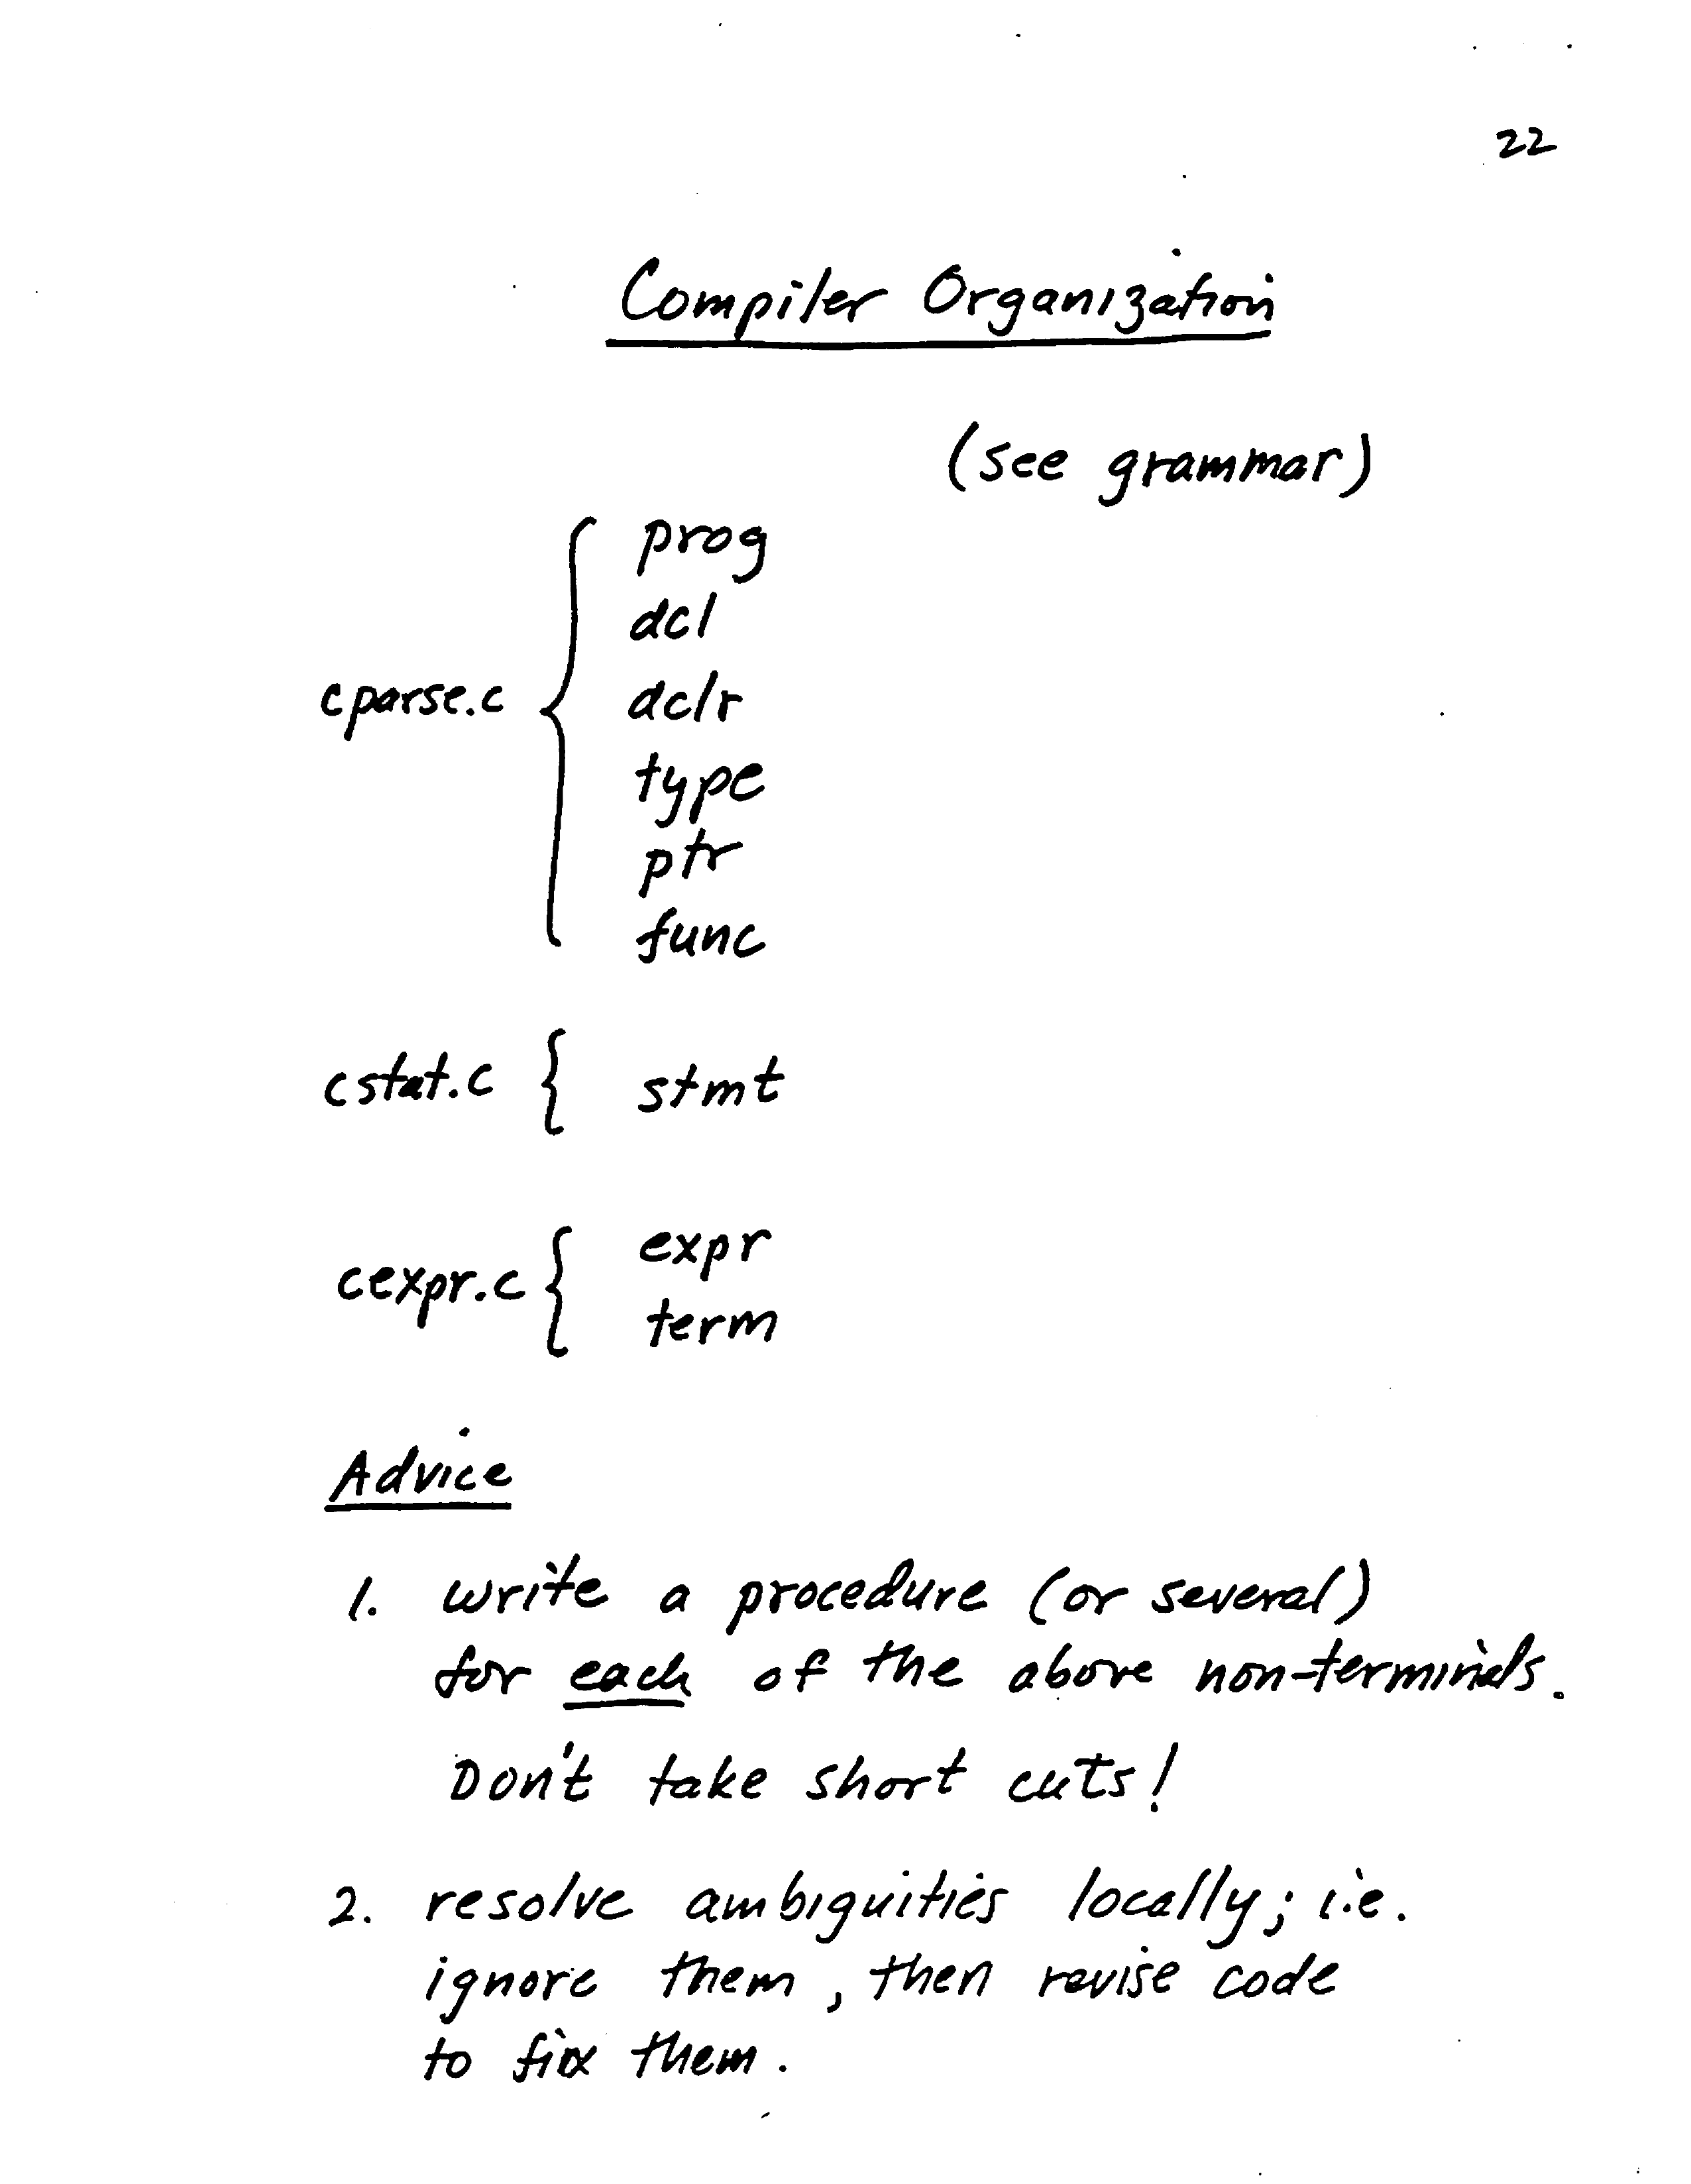 22
Compiler Organization
(see grammar)
prog
dcl
cparse.c { dclr
type
ptr
func
cstat.c { stmt
cexpr.c { expr
term
Advice
1. write a procedure (or several)
for each of the above non-terminals.
Don't take short cuts!
2. resolve ambiguities locally; i.e.
ignore them, then revise code
to fix them.